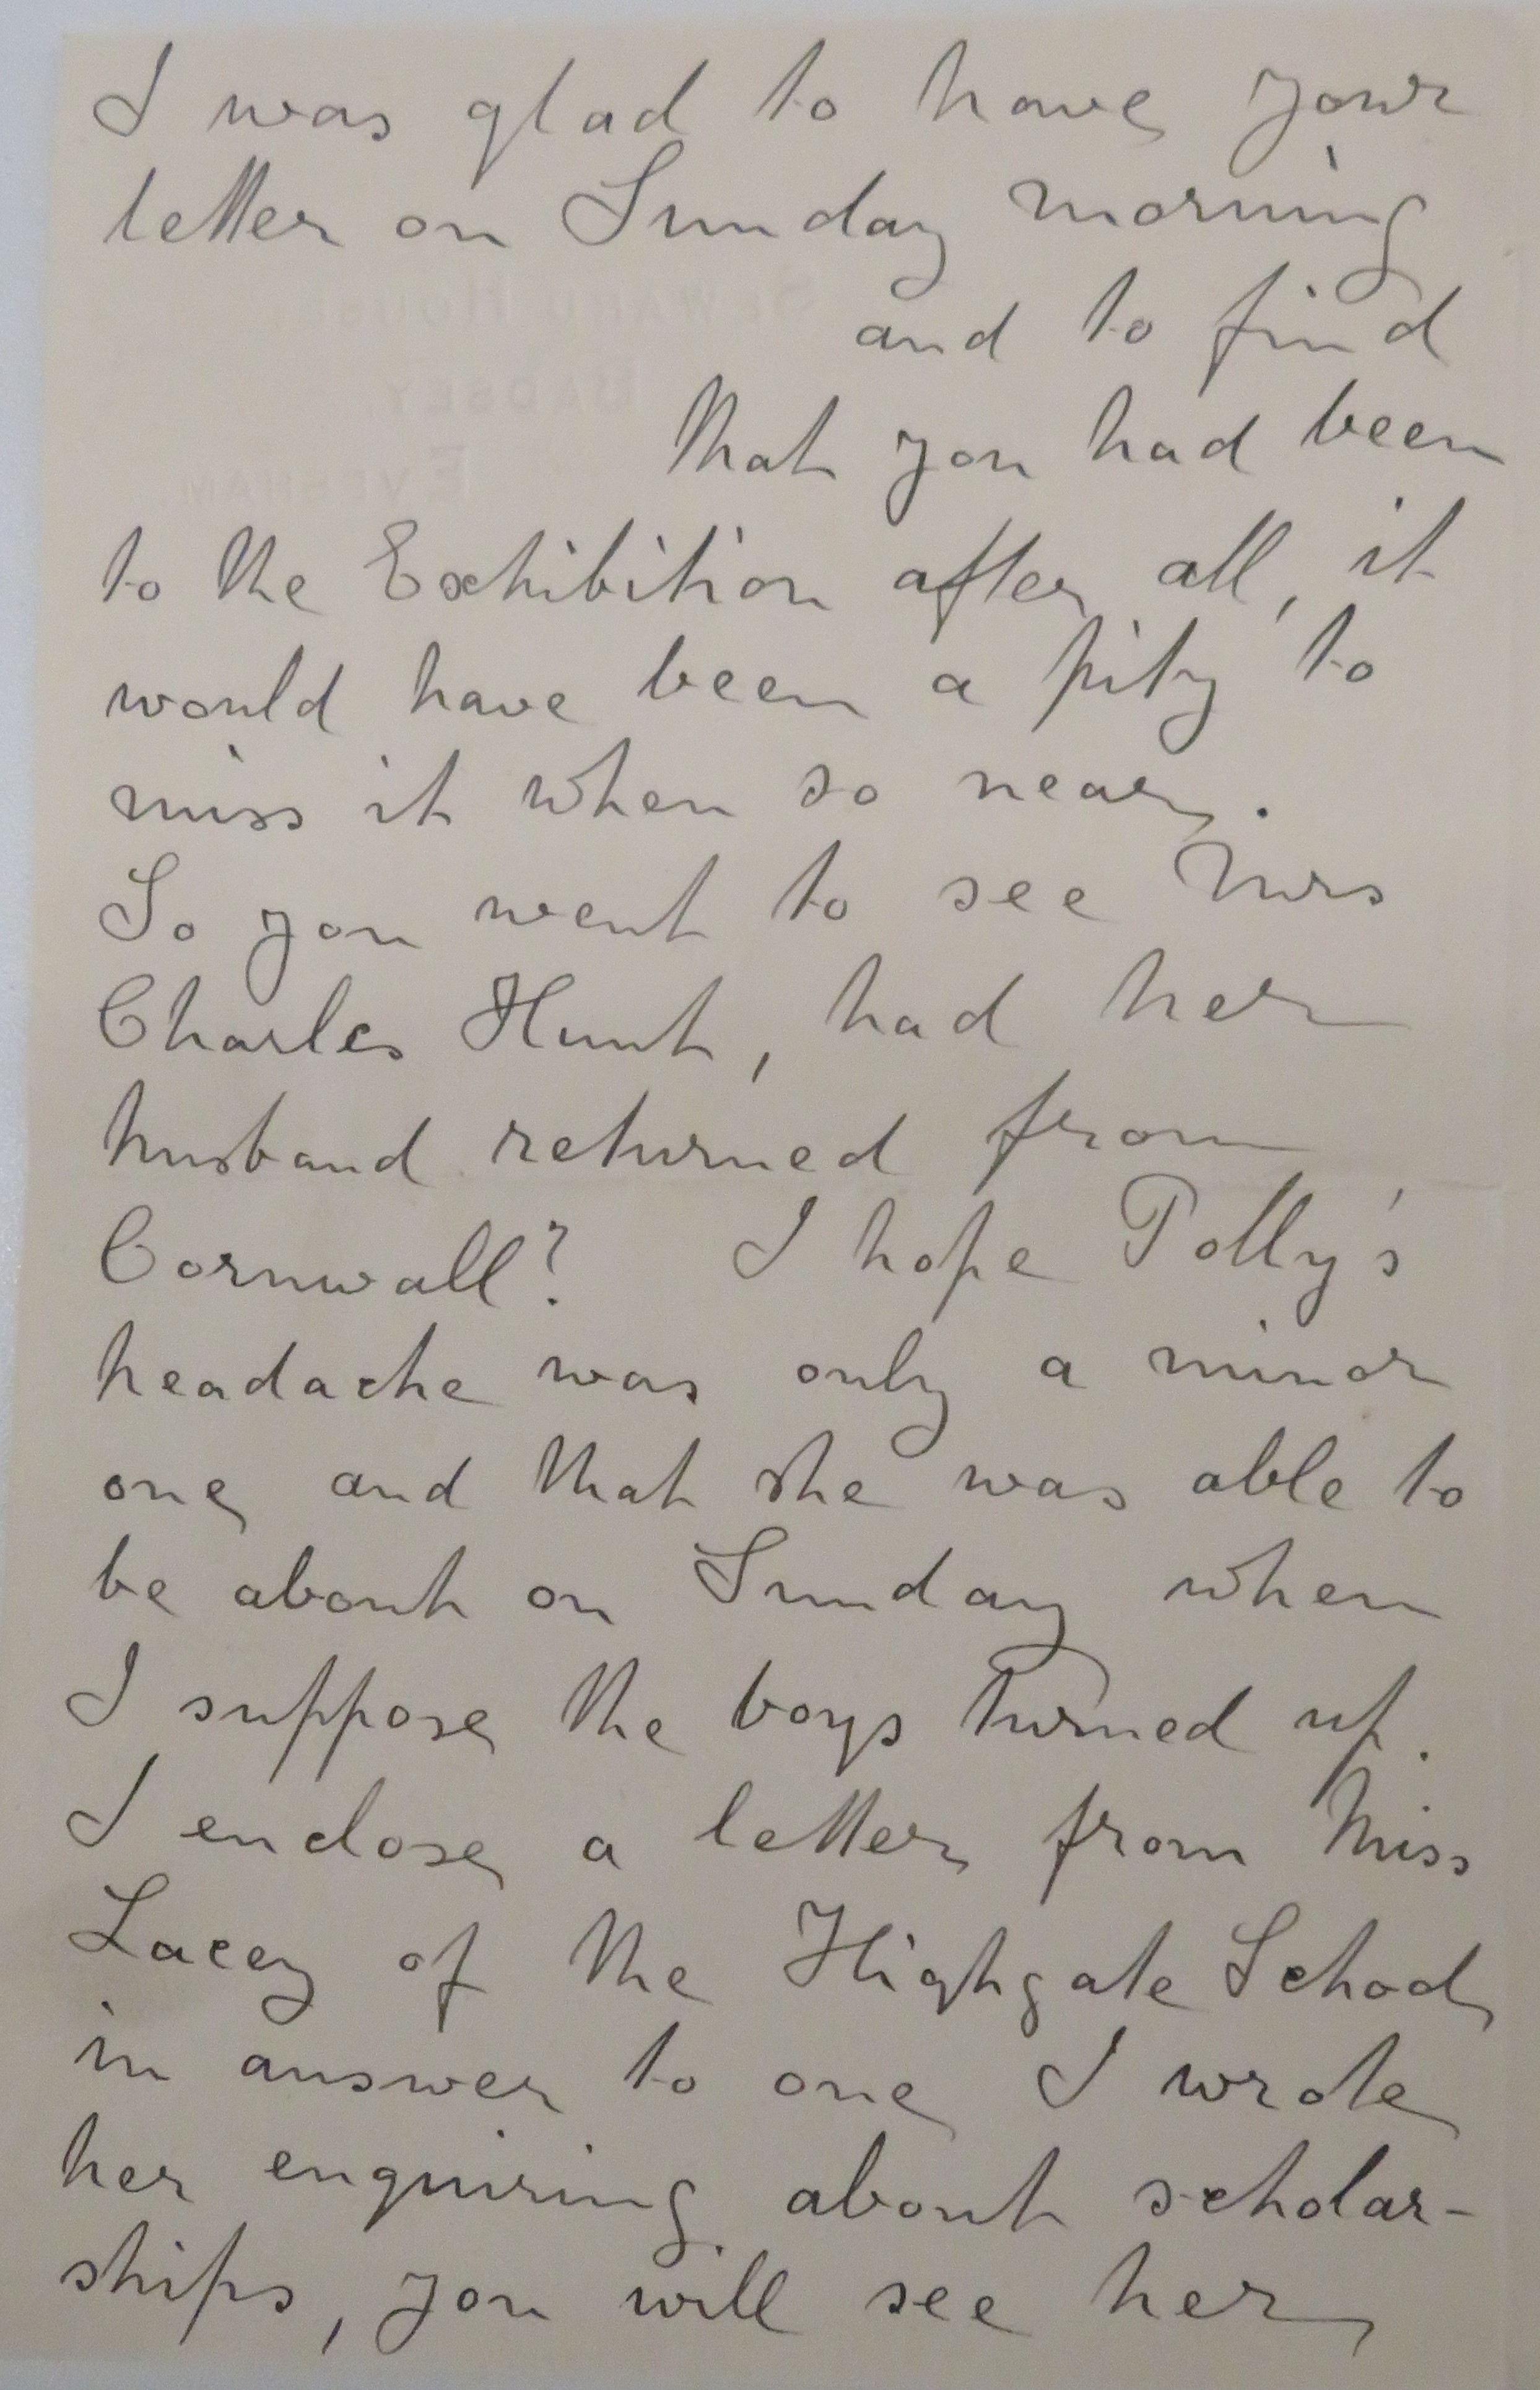 I was glad to have your
letter on Sunday morning
and to find
that you had been
to the Exhibition after all, it
would have been a pity to
miss it when so near.
So you went to see Mrs
Charles Hunt, had her
husband returned from
Cornwall? I hope Polly's
headache was only a minor
one and that she was able to
be about on Sunday when
I suppose the boys turned up.
I enclose a letter from Miss
Lacey of the Highgate School
in answer to one I wrote
her enquiring about scholar-
ships, you will see her
SEWARD HOUSE
BADSEY,
EVESHAM